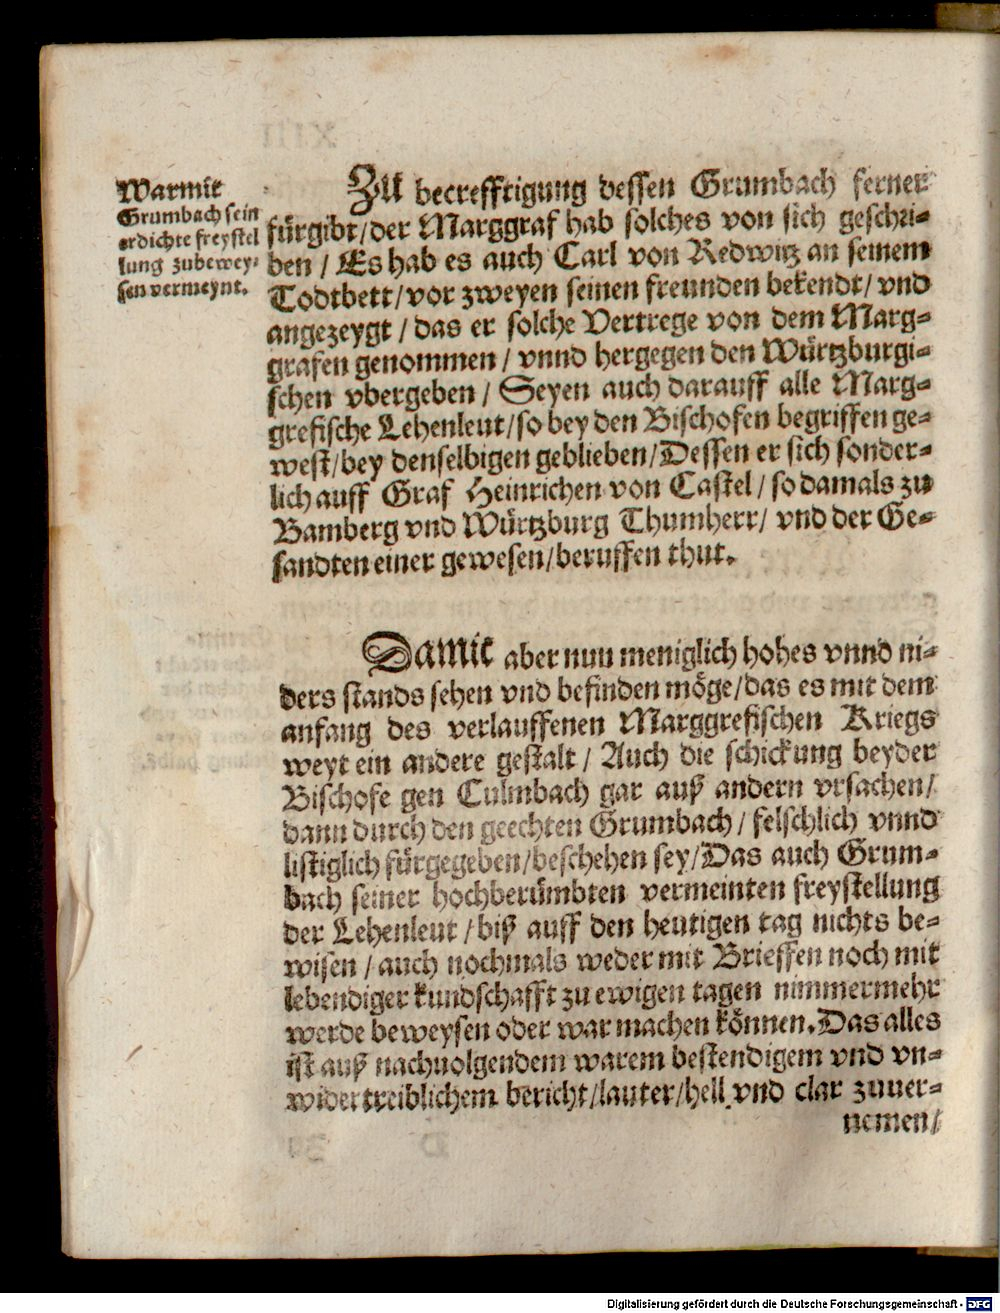 Warmit
Grumbach sein
erdichte freystel
lung zubewey-
sen vermeynt.
Zu becrefftigung dessen Grumbach ferner
fürgibt/der Marggraf hab solches von sich geschri-
ben / Es hab es auch Carl von Redwitz an seinem
Todtbett/vor zweyen seinen freunden bekendt/ vnd
angezeygt / das er solche Vertrege von dem Marg-
grafen genommen / vnnd hergegen den Würtzburgi-
schen vbergeben / Seyen auch darauff alle Marg-
grefische Lehenleut/so bey den Bischofen begriffen ge-
west/bey denselbigen geblieben/Dessen er sich sonder-
lich auff Graf Heinrichen von Castel / so damals zu
Bamberg vnd Würtzburg Thumherr/ vnd der Ge-
sandten einer gewesen/beruffen thut.
Damit aber nun meniglich hohes vnnd ni-
ders stands sehen vnd befinden möge/das es mit dem
anfang des verlauffenen Marggrefischen Kriegs
weyt ein andere gestalt / Auch die schickung beyder
Bischofe gen Culmbach gar auß andern vrsachen/
dann durch den geechten Grumbach / felschlich vnnd
listiglich fürgegeben/beschehen sey/Das auch Grum-
bach seiner hochberümbten vermeinten freystellung
der Lehenleut / biß auff den heutigen tag nichts be-
wisen / auch nochmals weder mit Brieffen noch mit
lebendiger kundschafft zu ewigen tagen nimmermehr
werde beweysen oder war machen können. Das alles
ist auß nachuolgendem warem bestendigem vnd vn-
widertreiblichem bericht/lauter/hell vnd clar zuuer-
nemen/
Digitalisierung gefördert durch die Deutsche Forschungsgemeinschaft - DFG